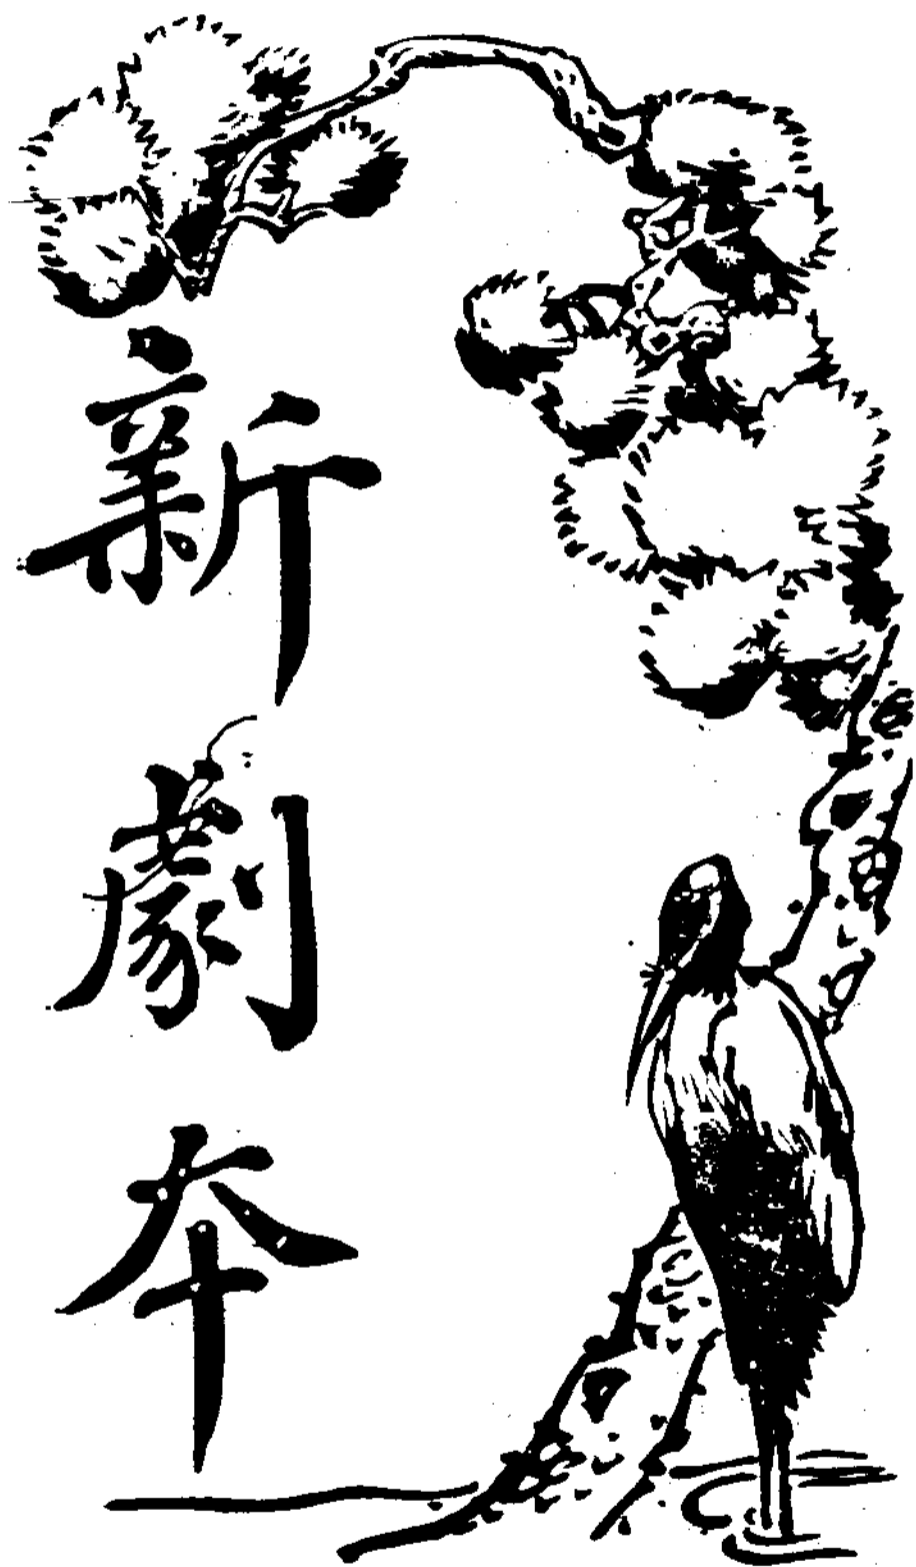 新劇本